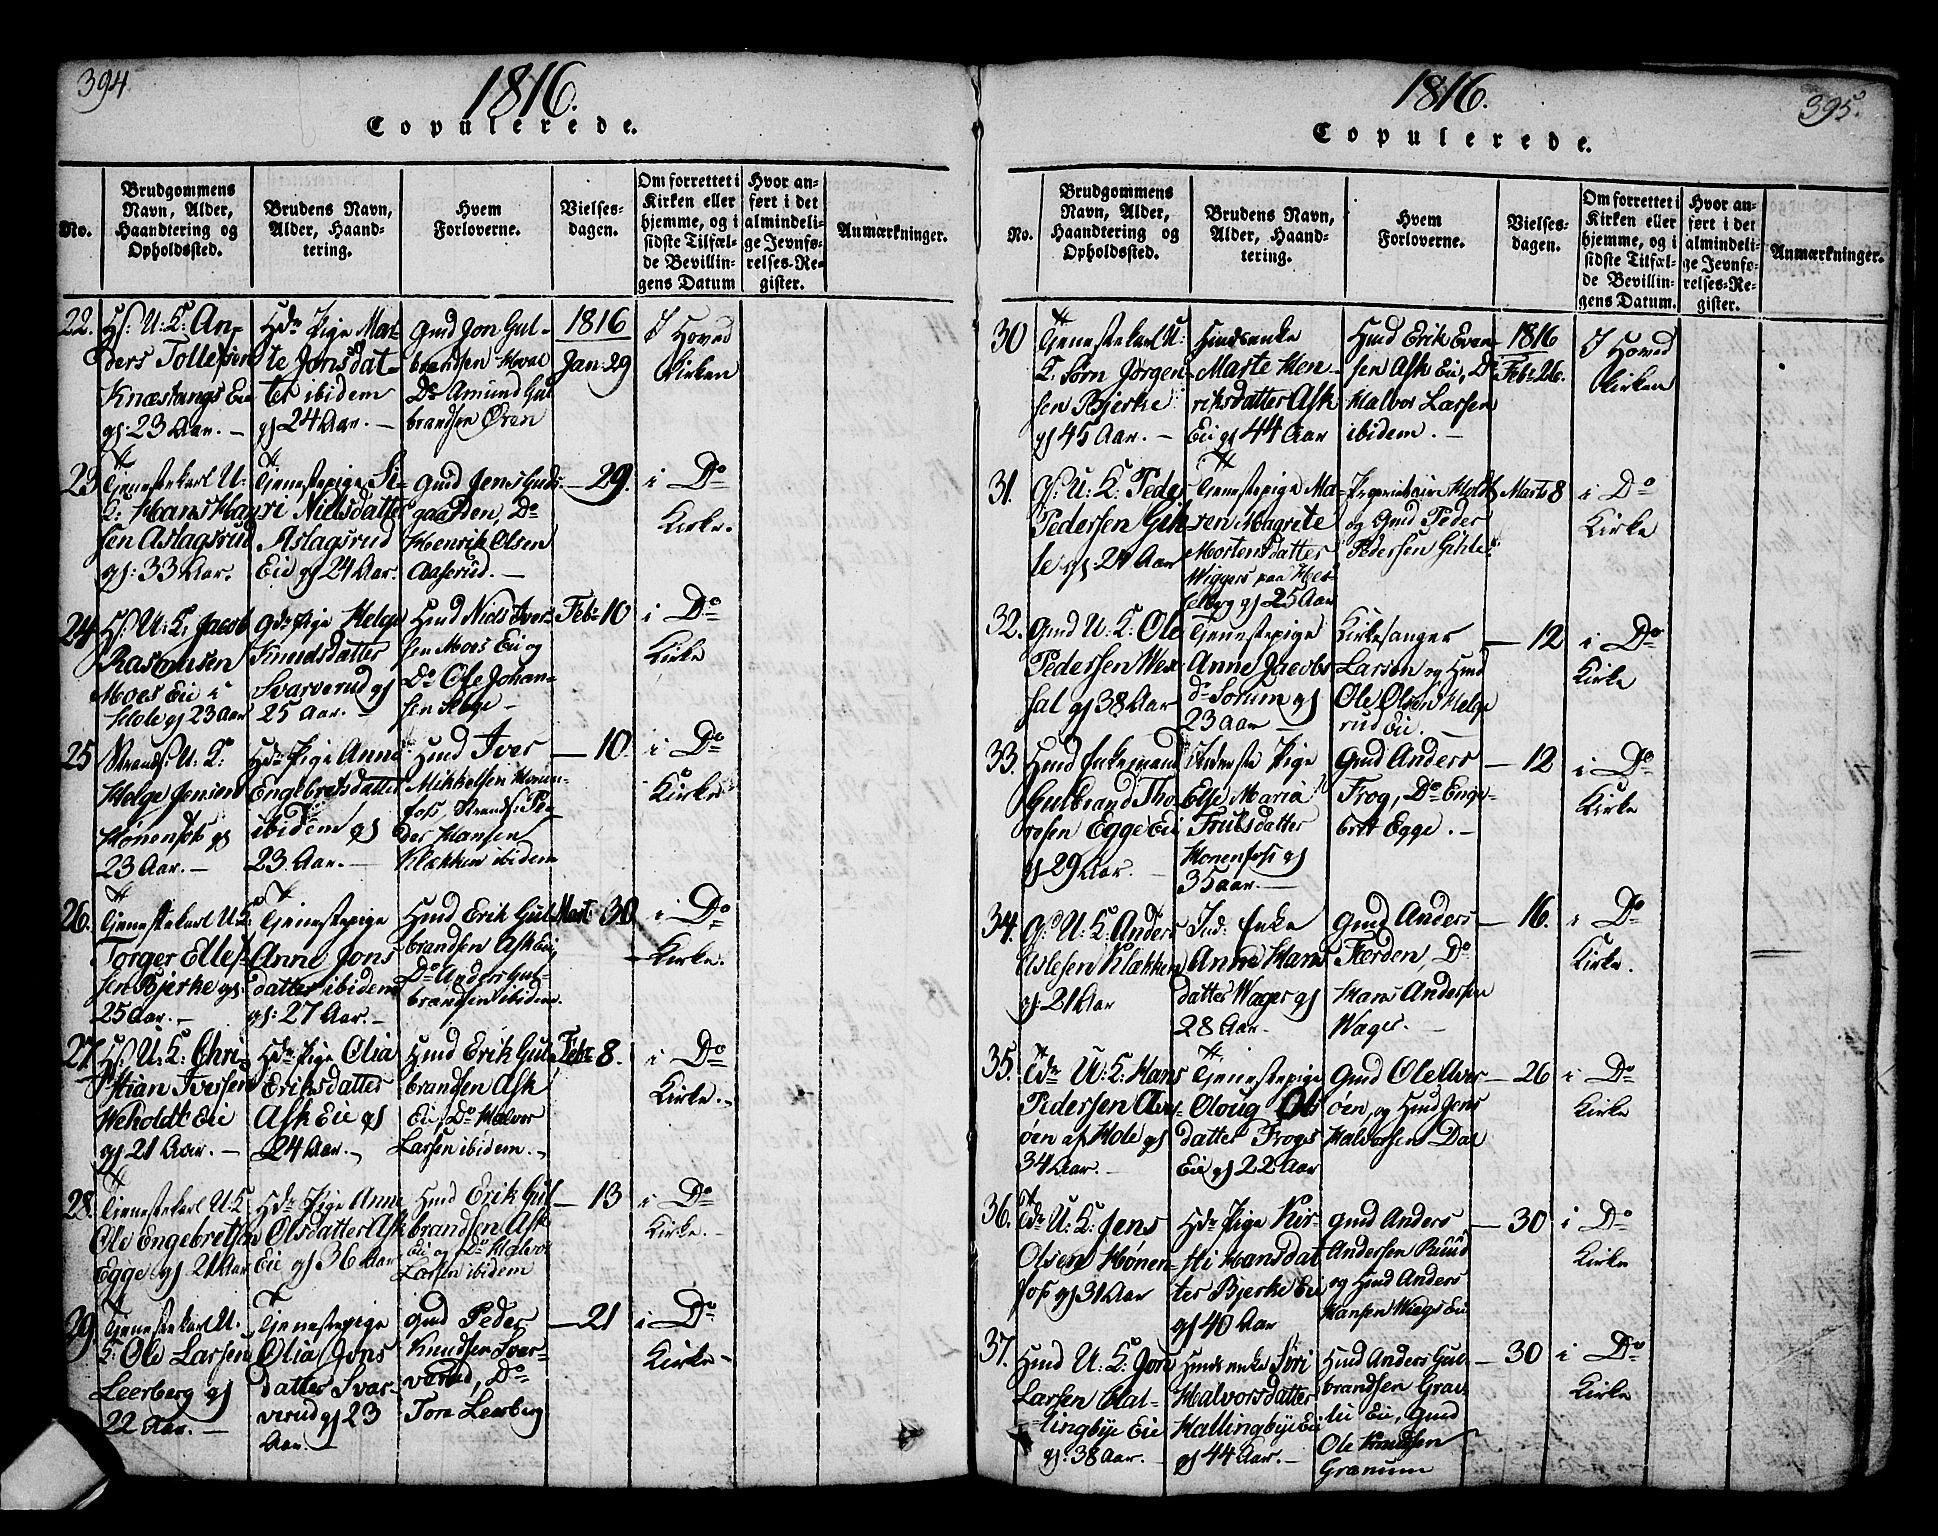 394
1816.
Copulerede.
No.
Brudgommens
Navn, Alder,
Haandtering og
Opholdssted.
Brudens Navn,
Alder, Haand-
tering.
Hvem
Forloverne.
Vielses-
dagen.
Om forrettet i
Kirken eller
hjemme, og i
sidste Tilfæl-
de Bevillin-
gens Datum
Hvor an-
ført i det
almindeli-
ge Jevnfø-
relses-Re-
gister.
Anmærkninger.
22.
Hs: U: K: An-
ders Tollefsen
Knæstangs Eie
gl: 23 Aar. -
Hds Pige Mar-
te Jonsdat-
ter ibidem
gl 24 Aar. -
Gmd Jon Gul-
brandsen Hval
Do Amund Gul
brandsen Øren
1816
Jan 29
I Hoved
Kirken
23
Tjenestekarl U:
K: Hans Han-
sen Aslagsrud
gl: 33 Aar.
Tjenestepige Si-
ri Nielsdatter
Aslagsrud
Eie gl 24 Aar.
Gmd Jens Guds-
gaarden, Do
Henrik Olsen
Aaserud. -
- 29.
i Do
Kirke.
24
Hs: U: K: Jacob
Rasmusen
Moes Eie i
Hole gl 23 Aar
Gds Pige Helge
Knudsdatter
Svarverud gl
25 Aar. -
Hmd Niels Iver-
sen Moes Eie og
Do Ole Johan-
sen
Febr 10
i Do
Kirke
25
Strands: U: K:
Helge Jensen
Hønenfos gl
23 Aar. -
Hds Pige Anne
Engebretsdatter
ibidem gl
23 Aar. -
Hmd Iver
Mikkelsen Hønen-
fos, Strands: Pe-
der Hansen
Klækken ibidem
- 10.
i Do
Kirke
26.
Tjenestekarl U: K:
Torger Ellef-
sen Bjerke gl:
25 aar. -
Tjenestepige
Anne Jons
datter ibidem
gl: 27 Aar. -
Hmd Erik Gul
brandsen Ask Eie,
Do Anders Gul-
brandsen ibidem.
Mart 30
i Do
Kirke.
27.
Hs: U: K: Chri-
stian Iversen
Veholdt Eie
gl 21 Aar. -
Hds Pige Olia
Eriksdatter
Ask Eie gl
24 Aar. -
Hmd Erik Gul-
brandsen Ask
Eie, Do Halvor
Larsen ibidem. -
Febr 8.
i Do
Kirke. -
28.
Tjenestekarl U: K
Ole Engebretsen
Egge gl 21 Aar
Hds Pige Anne
Olsdatter Ask
Eie gl 36 Aar
Hmd Erik Gul
brandsen Ask
Eie og Do Halvor
Larsen ibidem
- 13
i Do
Kirke. -
29.
Tjenestekarl U.
K: Ole Larsen
Leerberg gl
22 Aar. -
Tjenestepige
Olia Jons
datter Svar-
verud gl 23
Aar -
Gmd Peder
Knudsen Svar-
verud, Do
Tore Leerberg
- 21
i Do
Kirke -
1816.
395.
Copulerede.
No.
Brudgommens
Navn, Alder,
Haandtering og
Opholdssted.
Brudens Navn,
Alder, Haand-
tering.
Hvem
Forloverne.
Vielses-
dagen.
Om forrettet i
Kirken eller
hjemme, og i
sidste Tilfæl-
de Bevillin-
gens Datum.
Hvor an-
ført i det
almindeli-
ge Jevnfø-
relses-Re-
gister.
Anmærkninger.
30
Tjenestekarl U:
K. Sørn Jørgen-
sen Bjerke
gl 45 Aar. -
Huusenke
Marte Hen-
riksdatter Ask
Eie gl 44 Aar
Hmd Erik Even-
sen Ask Eie, Do
Halvor Larsen
ibidem. -
1816
Febr 26.
I Hoved
Kirken
31.
Gs: U: K: Peder
Pedersen Gih-
le gl: 24 Aar
Tjenestepige Ma-
ren Magrete
Mortensdatter
Wiggers paa Hes-
selbyg gl 25 Aar
Holdt
og Gmd Peder
Pedersen Gihle.
Marts 8
i Do
Kirke
32.
Gmd U: K: Ole
Pedersen Vex-
sal gl 38 Aar
Tjenestepige
Anne Jacobs
dr Sorum gl
23 aar -
Kirkesanger
Larsen og Hmd
Ole Olsen Helge
rud Eie. -
- 12
i Do
Kirke
33.
Hmd Enkemand
Gulbrand Tho-
resen Egge Eie
gl 29 Aar. -
Pige
Else Maria
Trulsdatter
Honenfoss gl
35 aar. -
Gmd Anders
Frog, Do Enge-
bret Egge. -
- 12
i Do
Kirke
34.
G: U: K. Anders
Aslesen Klækken
gl: 21 Aar
Ind: Enke
Anne Hans
datter Wager gl
28 Aar. -
Gmd Anders
Færden, Do
Hans Andersen
Wager. -
- 16.
i Do
Kirke.
35.
Tds U: K: Hans
Pedersen Aver-
øen af Hole gl
34 Aar. -
Tjenestepige
Oloug Ols
datter Frogs
Eie gl 22 Aar
Gmd Ole Aver
øen, og Hmd Jens
Halvorsen Dal
- 26
i Do
Kirke
36.
Tds U: K: Jens
Olsen Hønen-
fos gl 31 Aar
Hds Pige Kir-
sti Hansdat
ter Bjerke Eie
gl 40 Aar
Gmd Anders
Andersen Ruud
og Hmd Anders
Hansen Wægs Eie
- 30
i Do
Kirke
37.
Hmd U: K: Jon
Larsen Hal-
lingbye Eie
gl: 38 Aar. -
Huusenke Søri
Halvorsdatter
Hallingbye Eie
gl 44 Aar. -
Hmd Anders Gul-
brandsen Grav-
lie Eie, Gmd
Ole Knudsen
Granum
- 30
i Do
Kirke